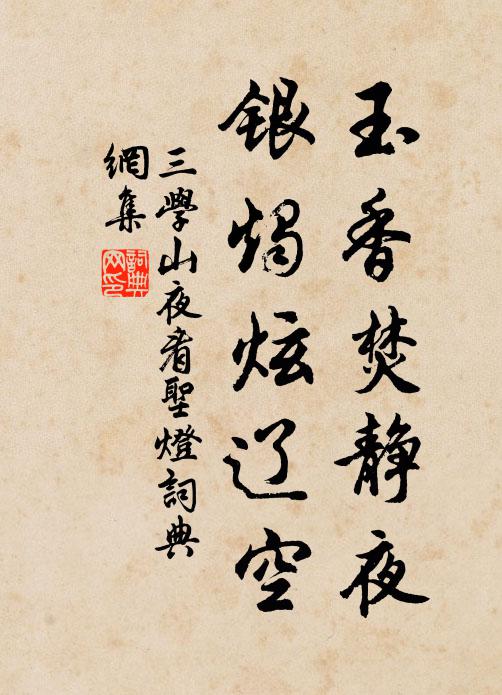 玉香焚静夜
銀燭炫辽空
三學山夜看聖燈詞典
網集
詞典
网印